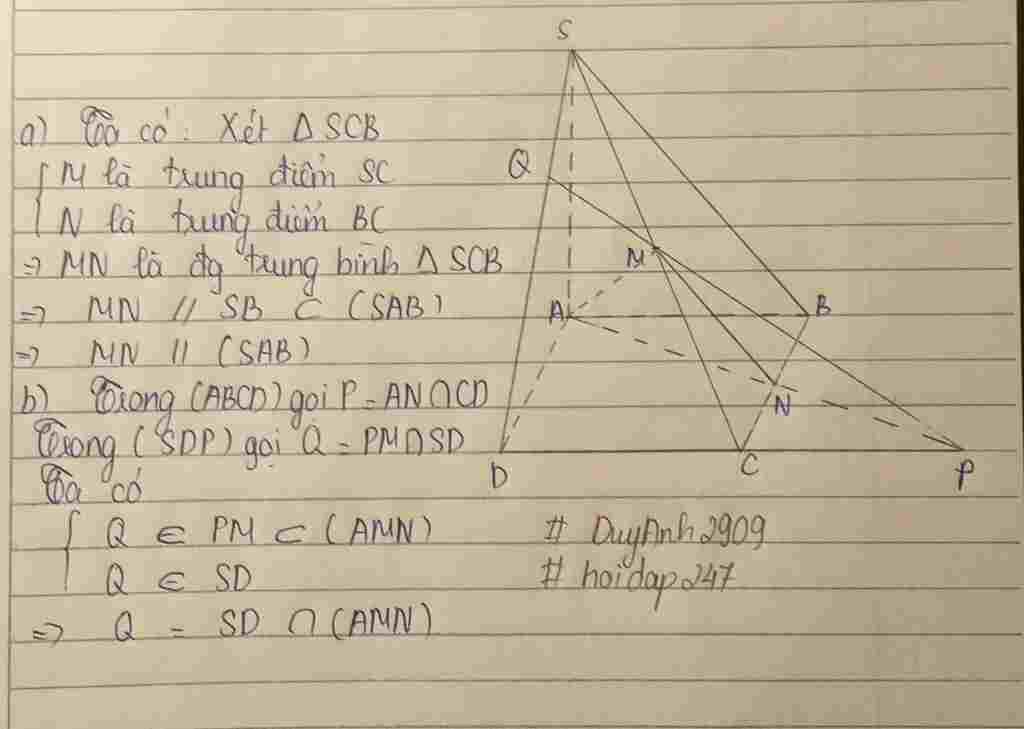 a) Ta có: Xét Δ SCB
M là trung điểm SC
N là trung điểm BC
=> MN là đg trung bình Δ SCB
=> MN // SB ⊂ (SAB)
=> MN // (SAB)
b) Trong (ABCD) gọi P = AN ∩ CD
Trong (SDP) gọi Q = PM ∩ SD
Ta có
Q ∈ PM ⊂ (AMN)
Q ∈ SD
=> Q = SD ∩ (AMN)
S
Q
M
A
B
N
D
C
P
# DuyAnh2909
# hoidap247